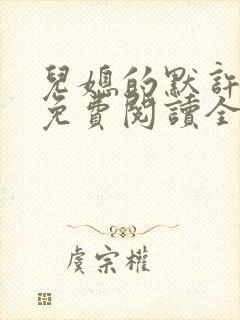 兒媳的默許
免費閱讀全
虞宗權